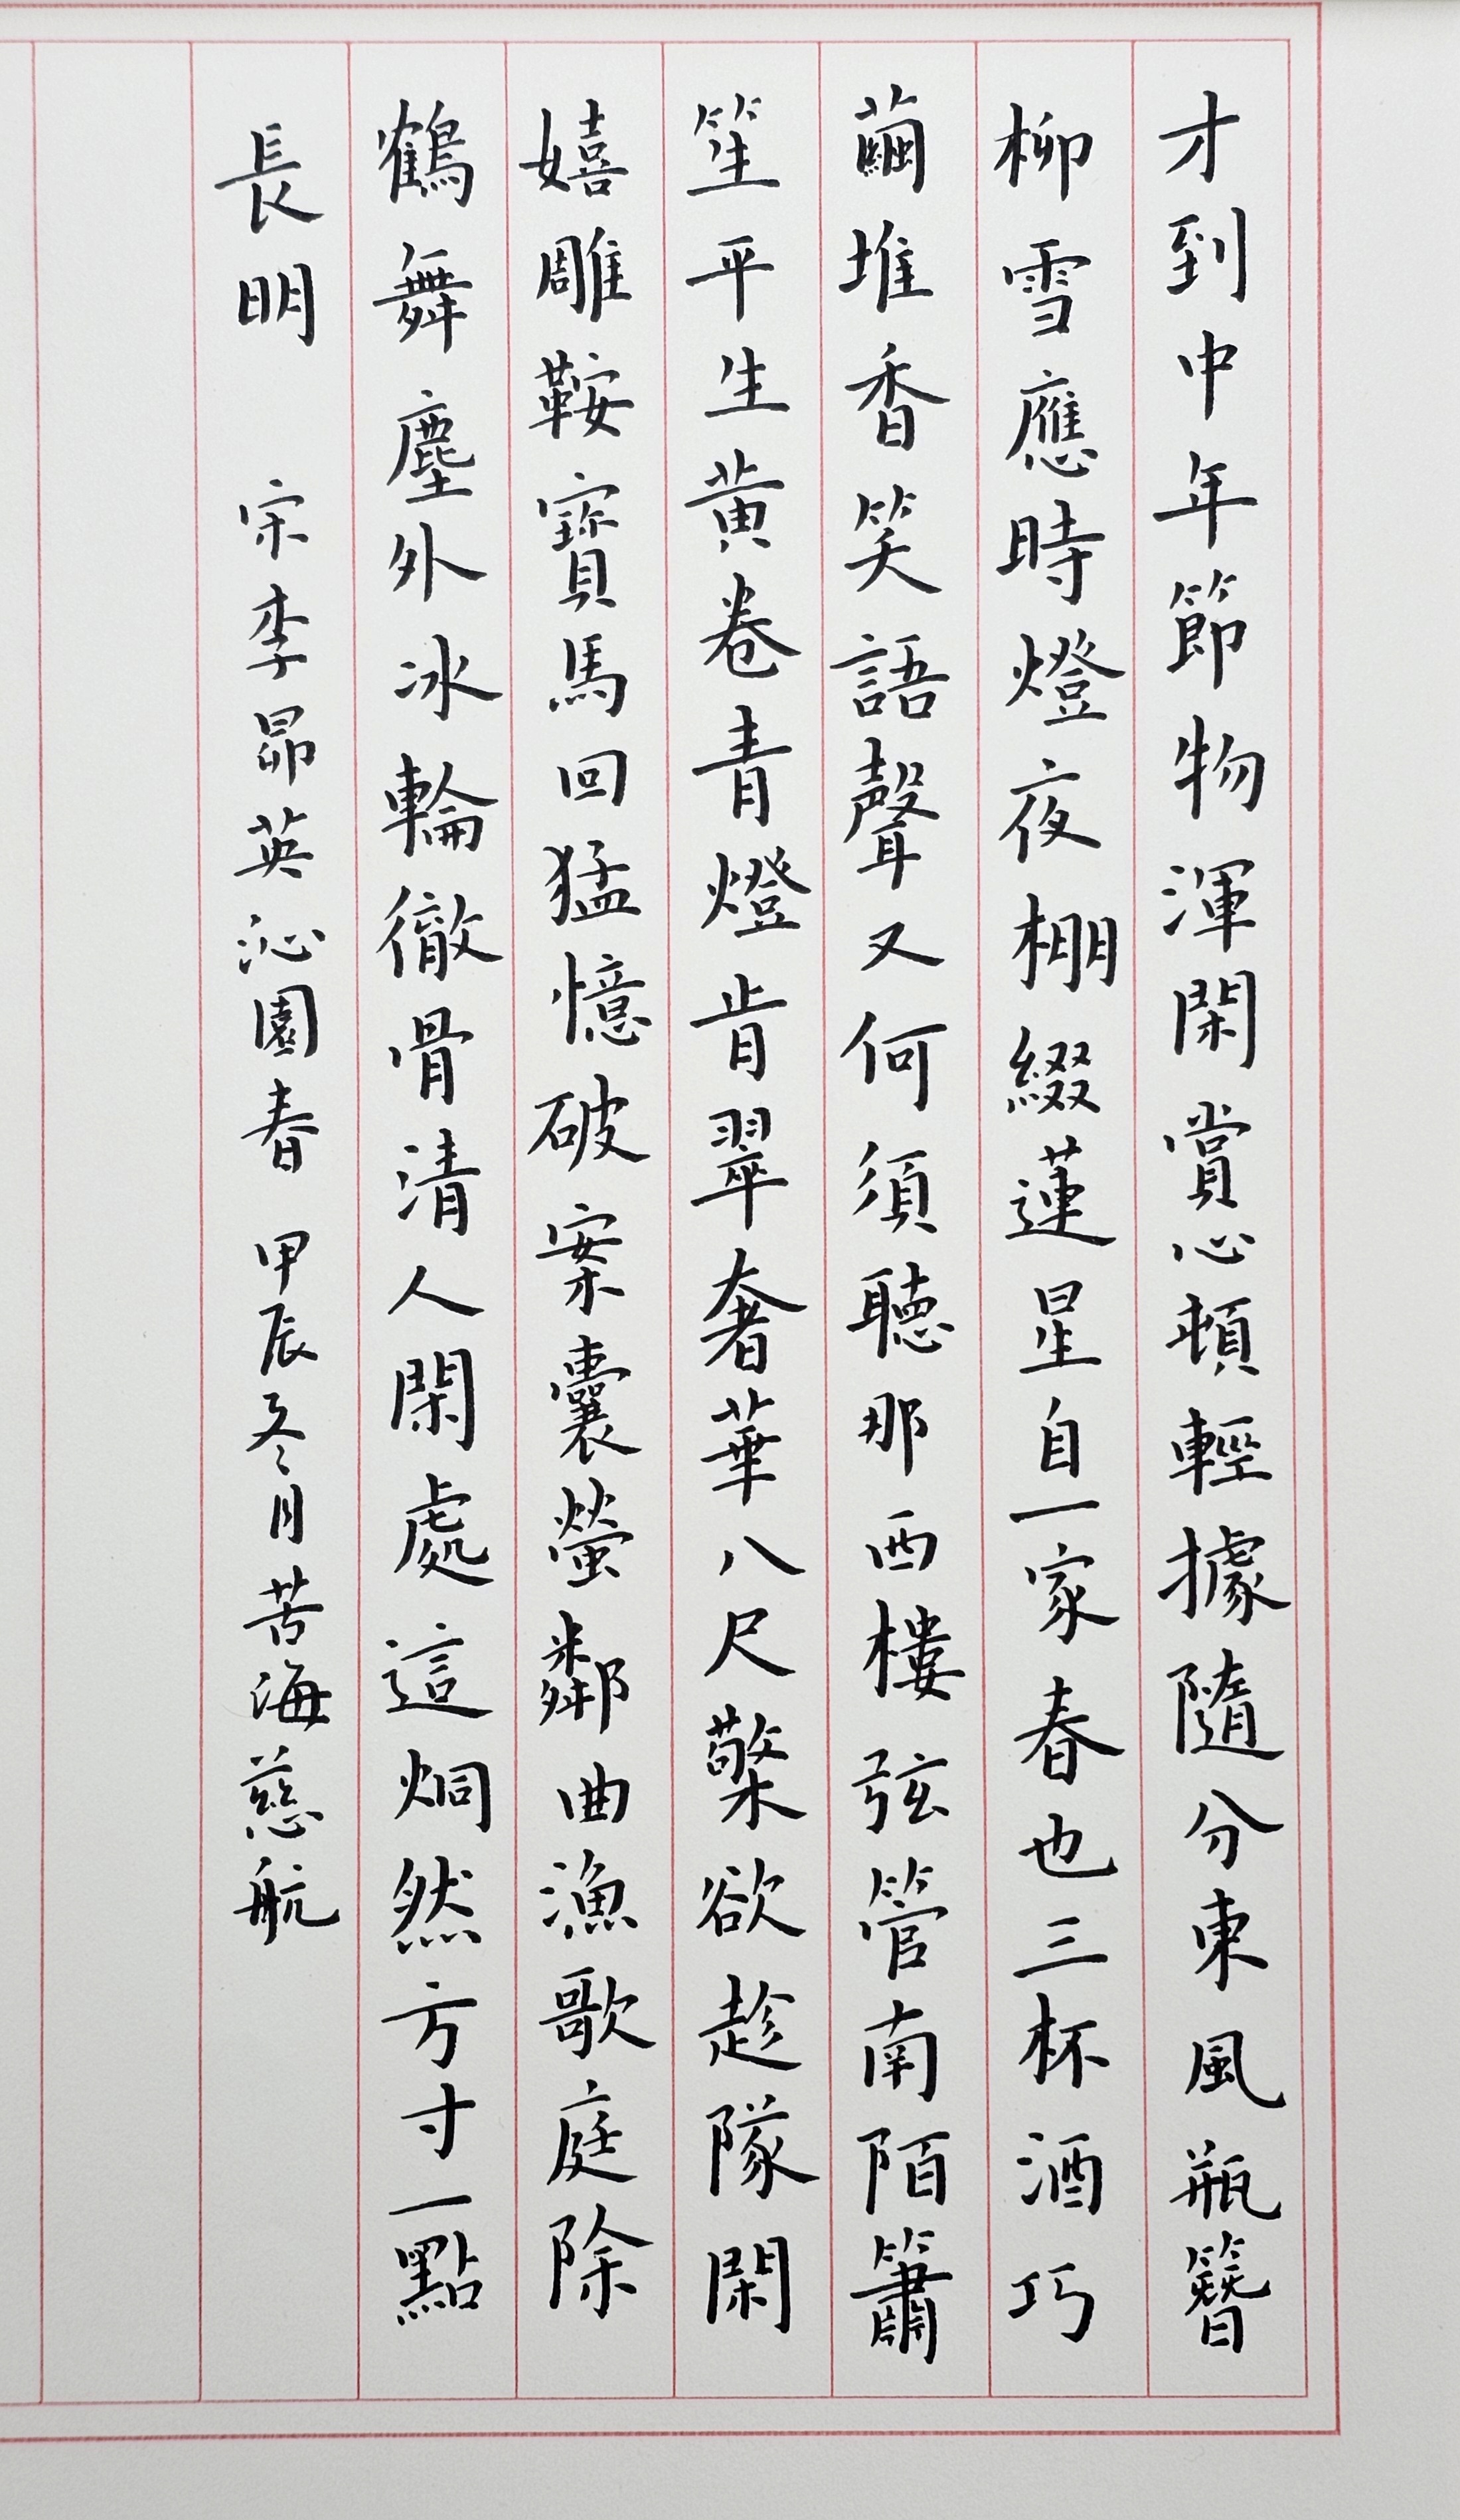 才到中年節物渾閑賞心頓輕據隨分東風瓶簪
柳雪應時燈夜棚綴蓮星自一家春也三杯酒巧
繭堆香笑語聲又何須聽那西樓弦管南陌簫
笙平生黄卷青燈肯翠奢華八尺檠欲趁隊閑
嬉雕鞍寶馬回猛憶破案囊螢鄰曲漁歌庭除
鶴舞塵外冰輪徹骨清人閑處這烱然方寸一點
長明 宋李昴英沁園春 甲辰冬月苦海慈航